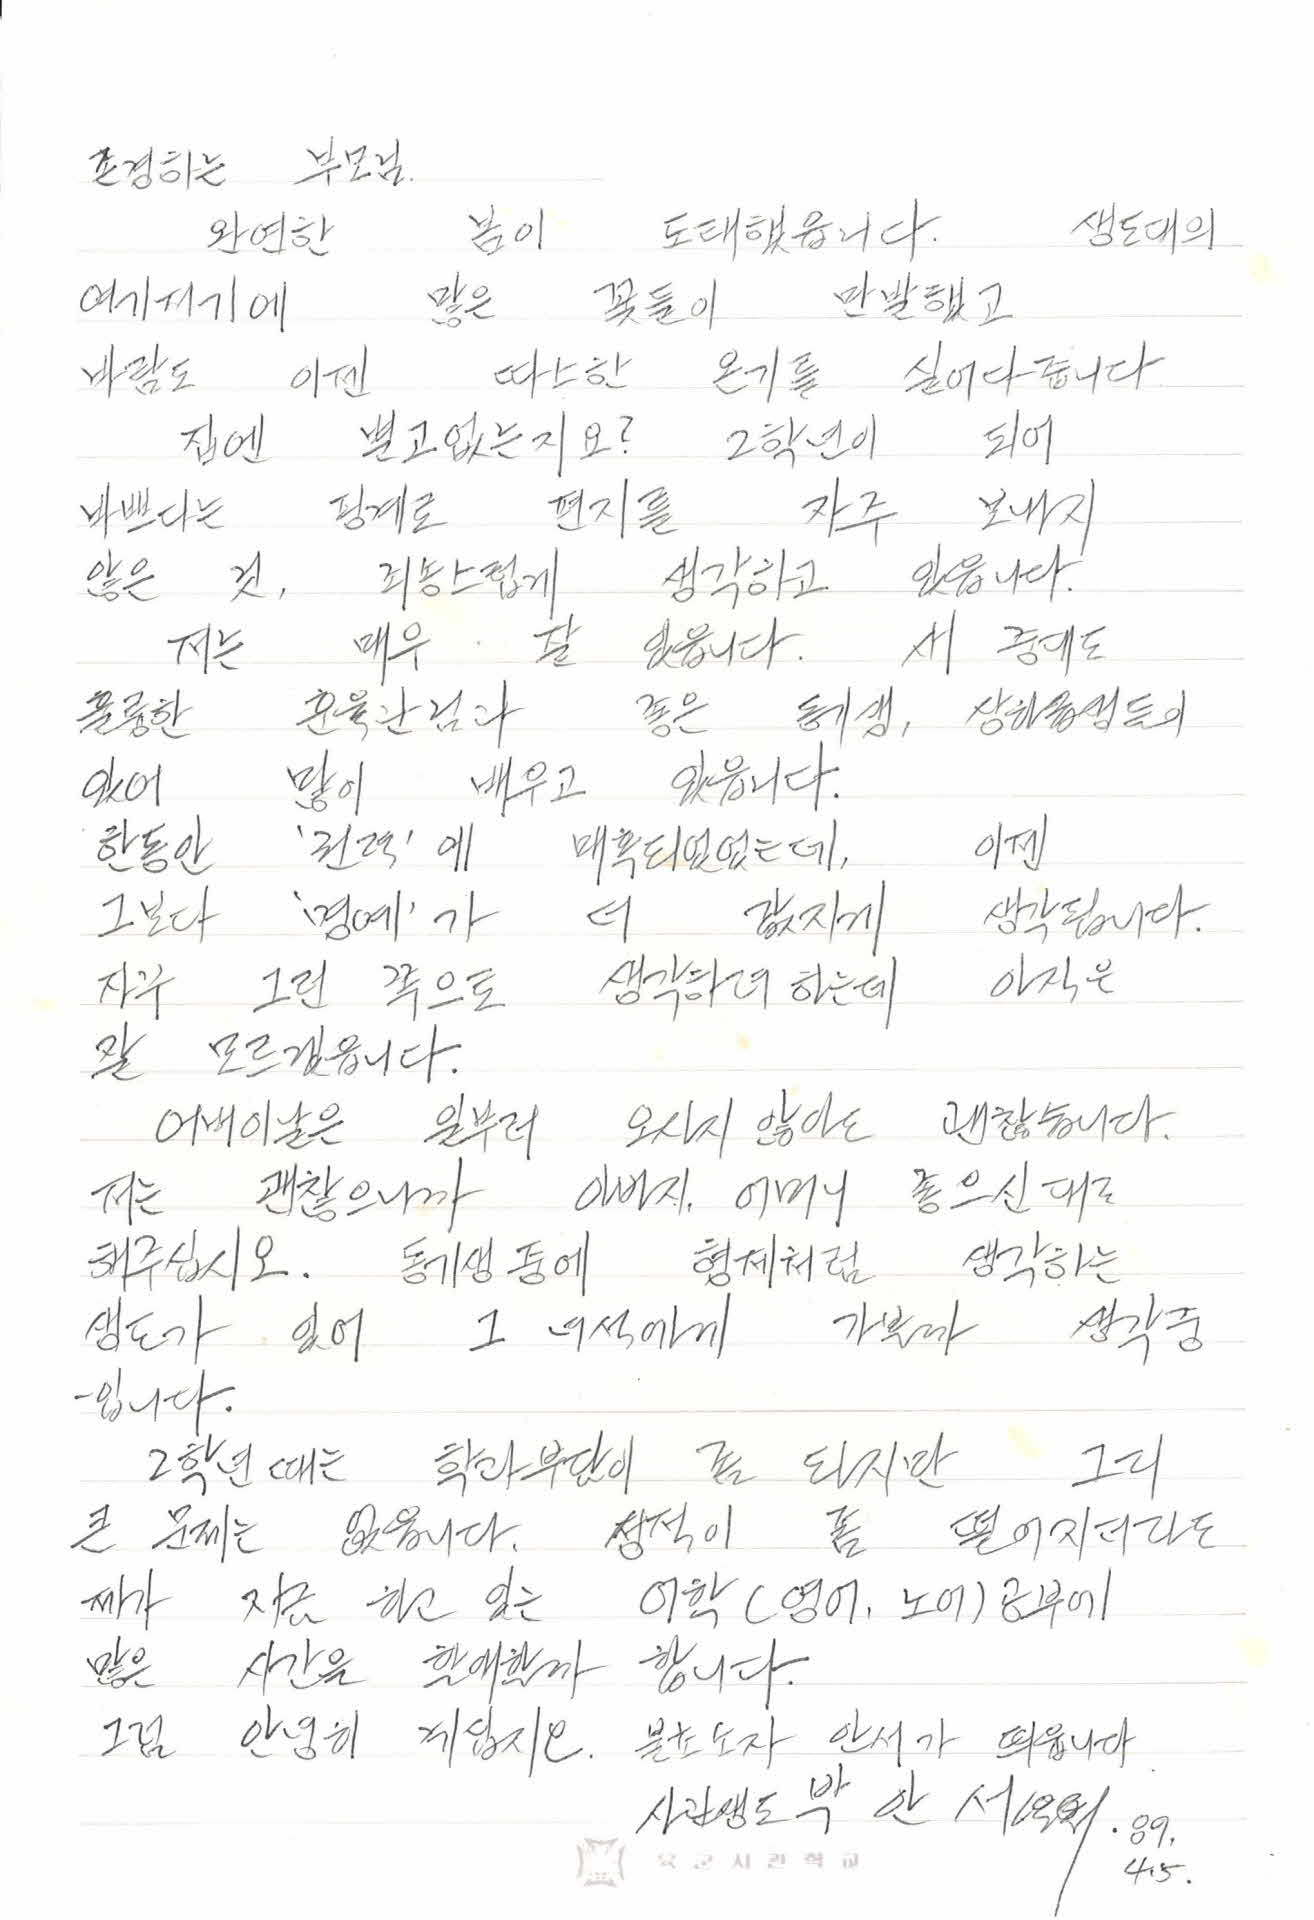 존경하는 부모님.
완연한 봄이 도태했읍니다. 생도대의
여기저기에 많은 꽃들이 만발했고
바람도 이젠 따스한 온기를 실어다줍니다
집엔 별고없는지요? 2학년이 되어
바쁘다는 핑계로 편지를 자주 보내지
않은 것, 죄송스럽게 생각하고 있읍니다.
저는 매우 잘 있읍니다. 새 중대도
훌륭한 훈육관님과 좋은 동기생, 상하급생들이
있어 많이 배우고 있읍니다.
한동안 '권력'에 매혹되었었는데, 이젠
그보다 '명예'가 더 값지게 생각됩니다.
자꾸 그런 쪽으로 생각하려 하는데 아직은
잘 모르겠읍니다.
어버이날은 일부러 오시지 않아도 괜찮습니다.
저는 괜찮으니까 아버지, 어머니 좋으신대로
해주십시오. 동기생중에 형제처럼 생각하는
생도가 있어 그 녀석에게 가볼까 생각중
-입니다.
2학년때는 학과부담이 좀 되지만 그리
큰 문제는 없읍니다. 성적이 좀 떨어지더라도
제가 지금 하고 있는 어학(영어, 노어)공부에
많은 시간을 할애할까 합니다.
그럼 안녕히 계십시오. 불초소자 안서가 띄웁니다
사관생도 박 안 서 .89.
4.5.
육군사관학교